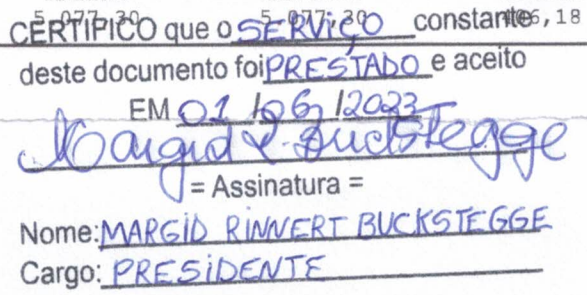 5.077,30 5.077,30 406,18
CERTIFICO que o SERVIÇO constante
deste documento foi PRESTADO e aceito
EM 01 / 06 / 2023
Margid R. Buckstegge
= Assinatura =
Nome: MARGID RINNERT BUCKSTEGGE
Cargo: PRESIDENTE